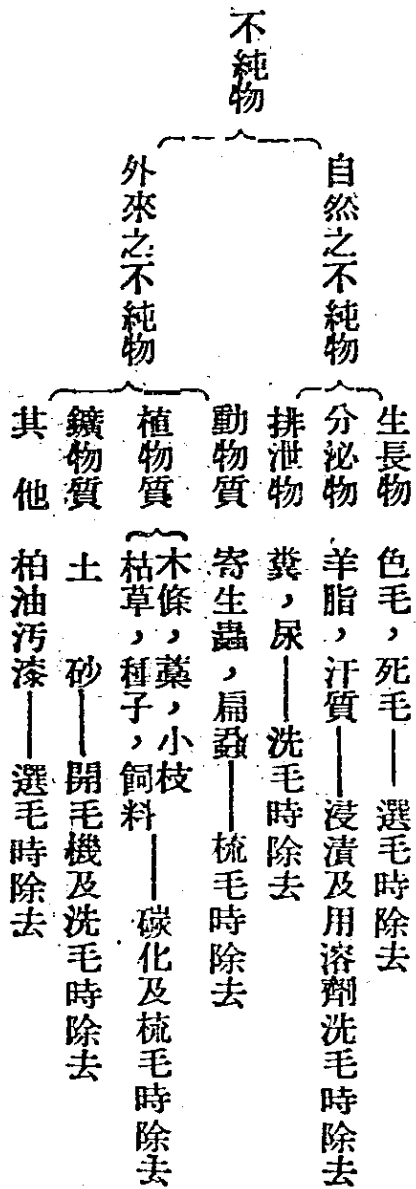 不純物
自然之不純物
生長物 色毛，死毛——選毛時除去
分泌物 羊脂，汗質——浸漬及用溶劑洗毛時除去
排泄物 糞，尿——洗毛時除去
外來之不純物
動物質 寄生蟲，扁蝨——梳毛時除去
植物質 木條，藁，小枝
枯草，種子，飼料——碳化及梳毛時除去
鑛物質 土 砂——開毛機及洗毛時除去
其他 柏油污漆——選毛時除去